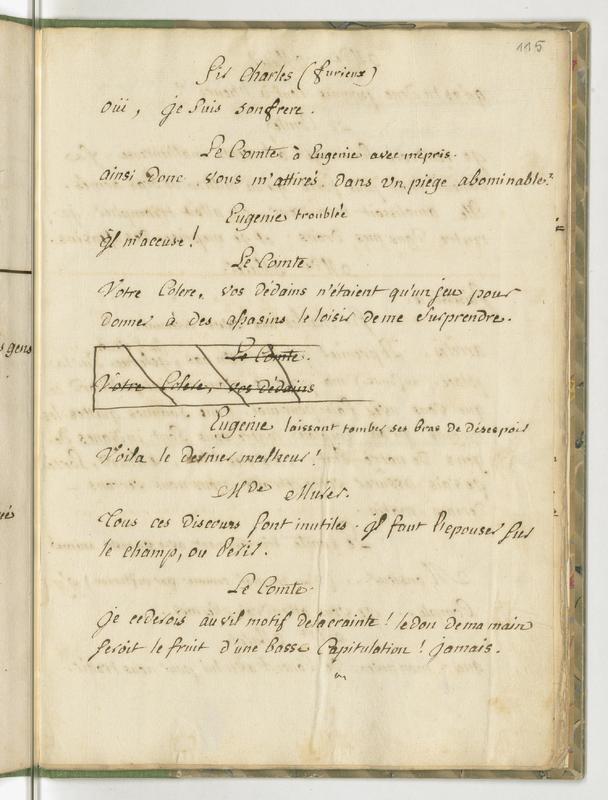 115
Sir Charles (furieux)
oüi, je suis son frere.
Le Comte à Eugenie avec mépris.
ainsi Donc vous m'attirés dans un piége abominable?
Eugenie troublée
Il m'accuse!
Le Comte.
Votre Colere, vos dédains n'étaient qu'un jeu pour
donner à des assasins le loisir de me surprendre.
Le Comte.
Votre Colere, vos dédains
Eugenie laissant tomber ses bras de désespoir
Voila le dernier malheur!
Mde Murer.
Tous ces discours sont inutiles. il faut l'epouser sur
le champ, ou périr.
Le Comte.
je cederois au vil motif de la crainte! le don de ma main
seroit le fruit d'une basse Capitulation! jamais.
s gens
ué